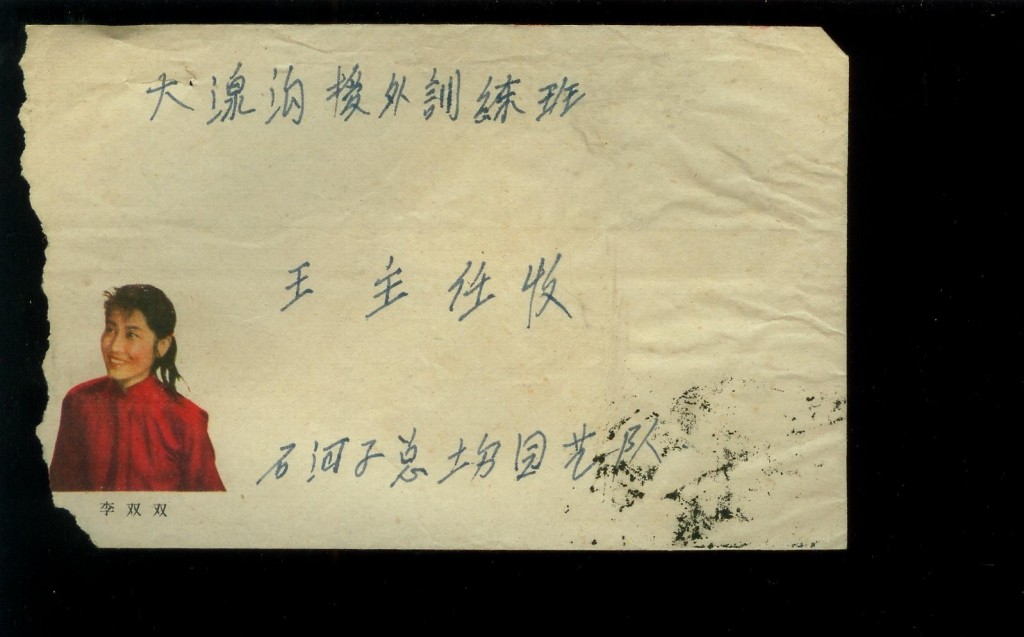 大湶沟援外訓練班
王主任收
石河子总场园艺队
李双双